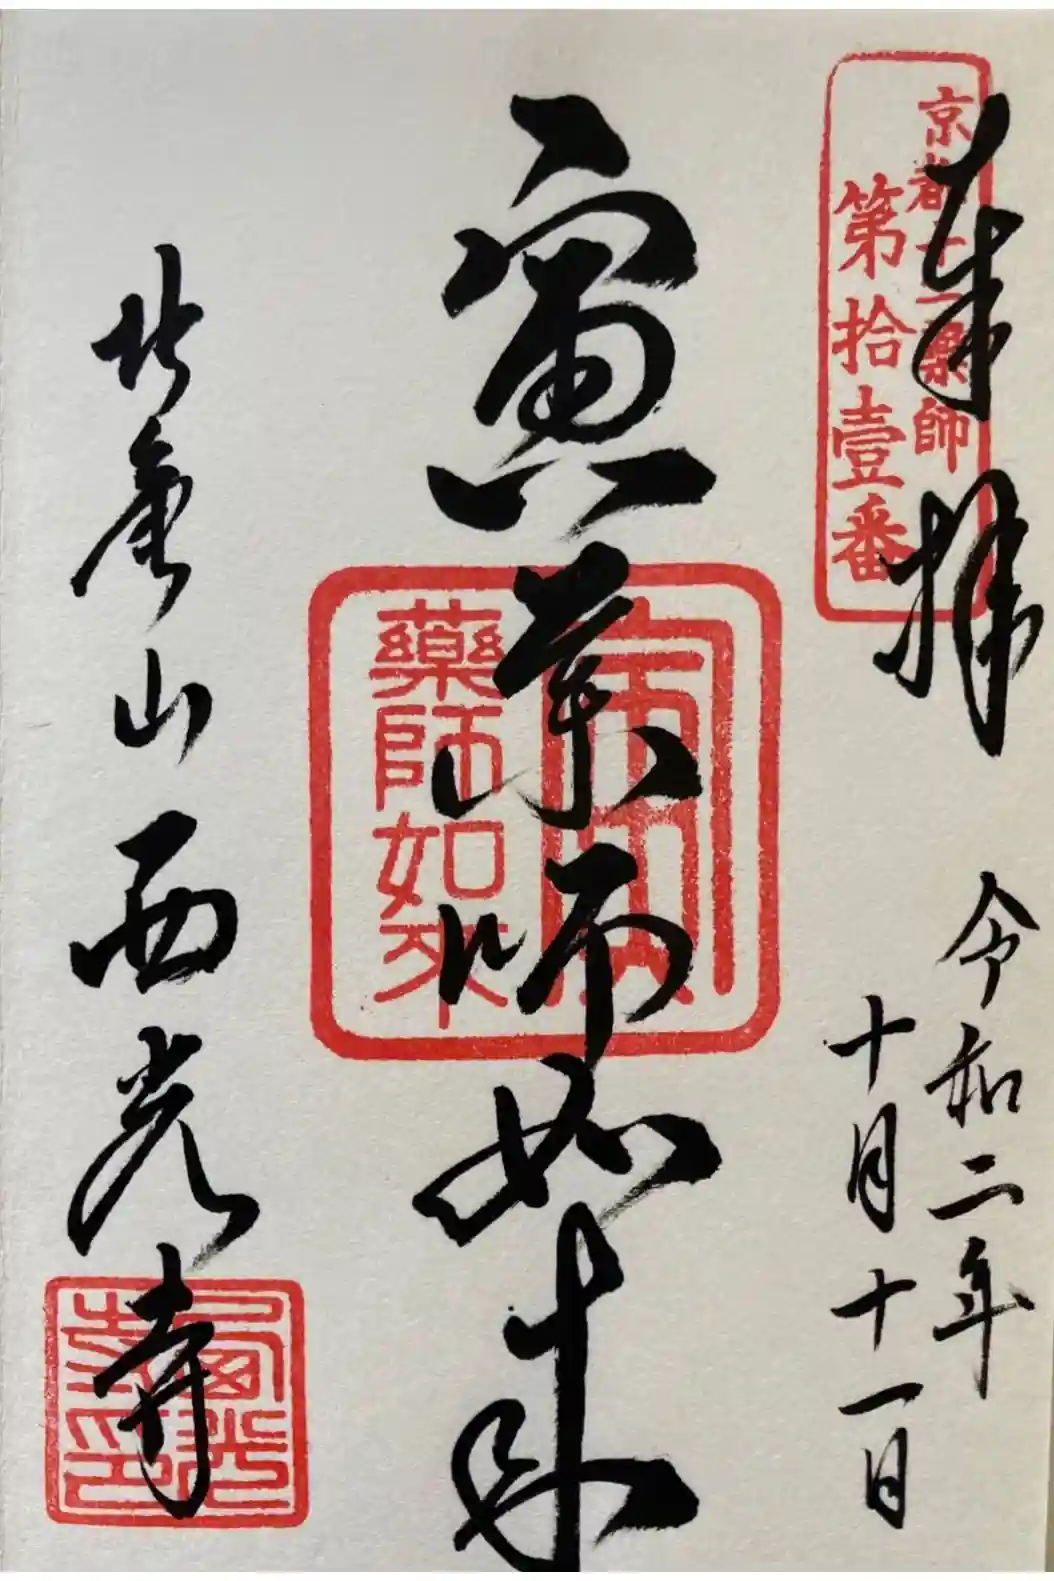 奉拝
京都十二薬師
第拾壹番
令和二年
十月十一日
寅薬師如来
寅
藥師如来
北亀山西光寺
西光
寺印